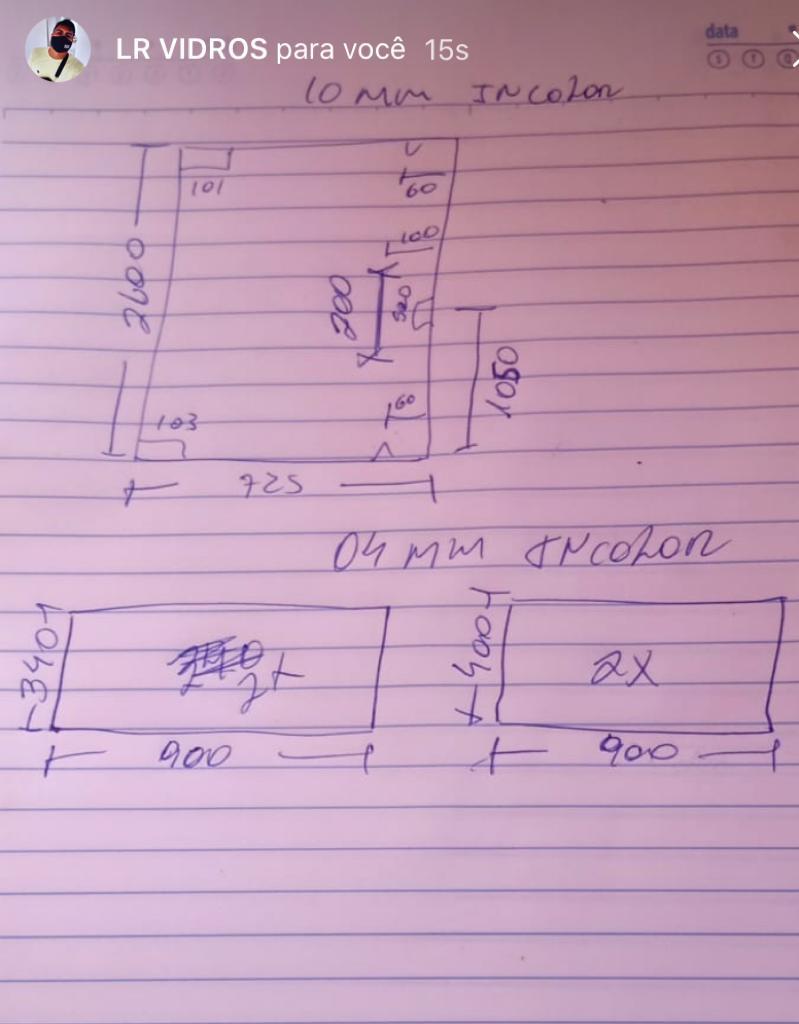 LR VIDROS para você 15s
data
S T Q
10 MM INCOLOR
101
60
100
2600
200
520
1050
103
60
725
04 MM INCOLOR
340
2X
400
2X
900
900